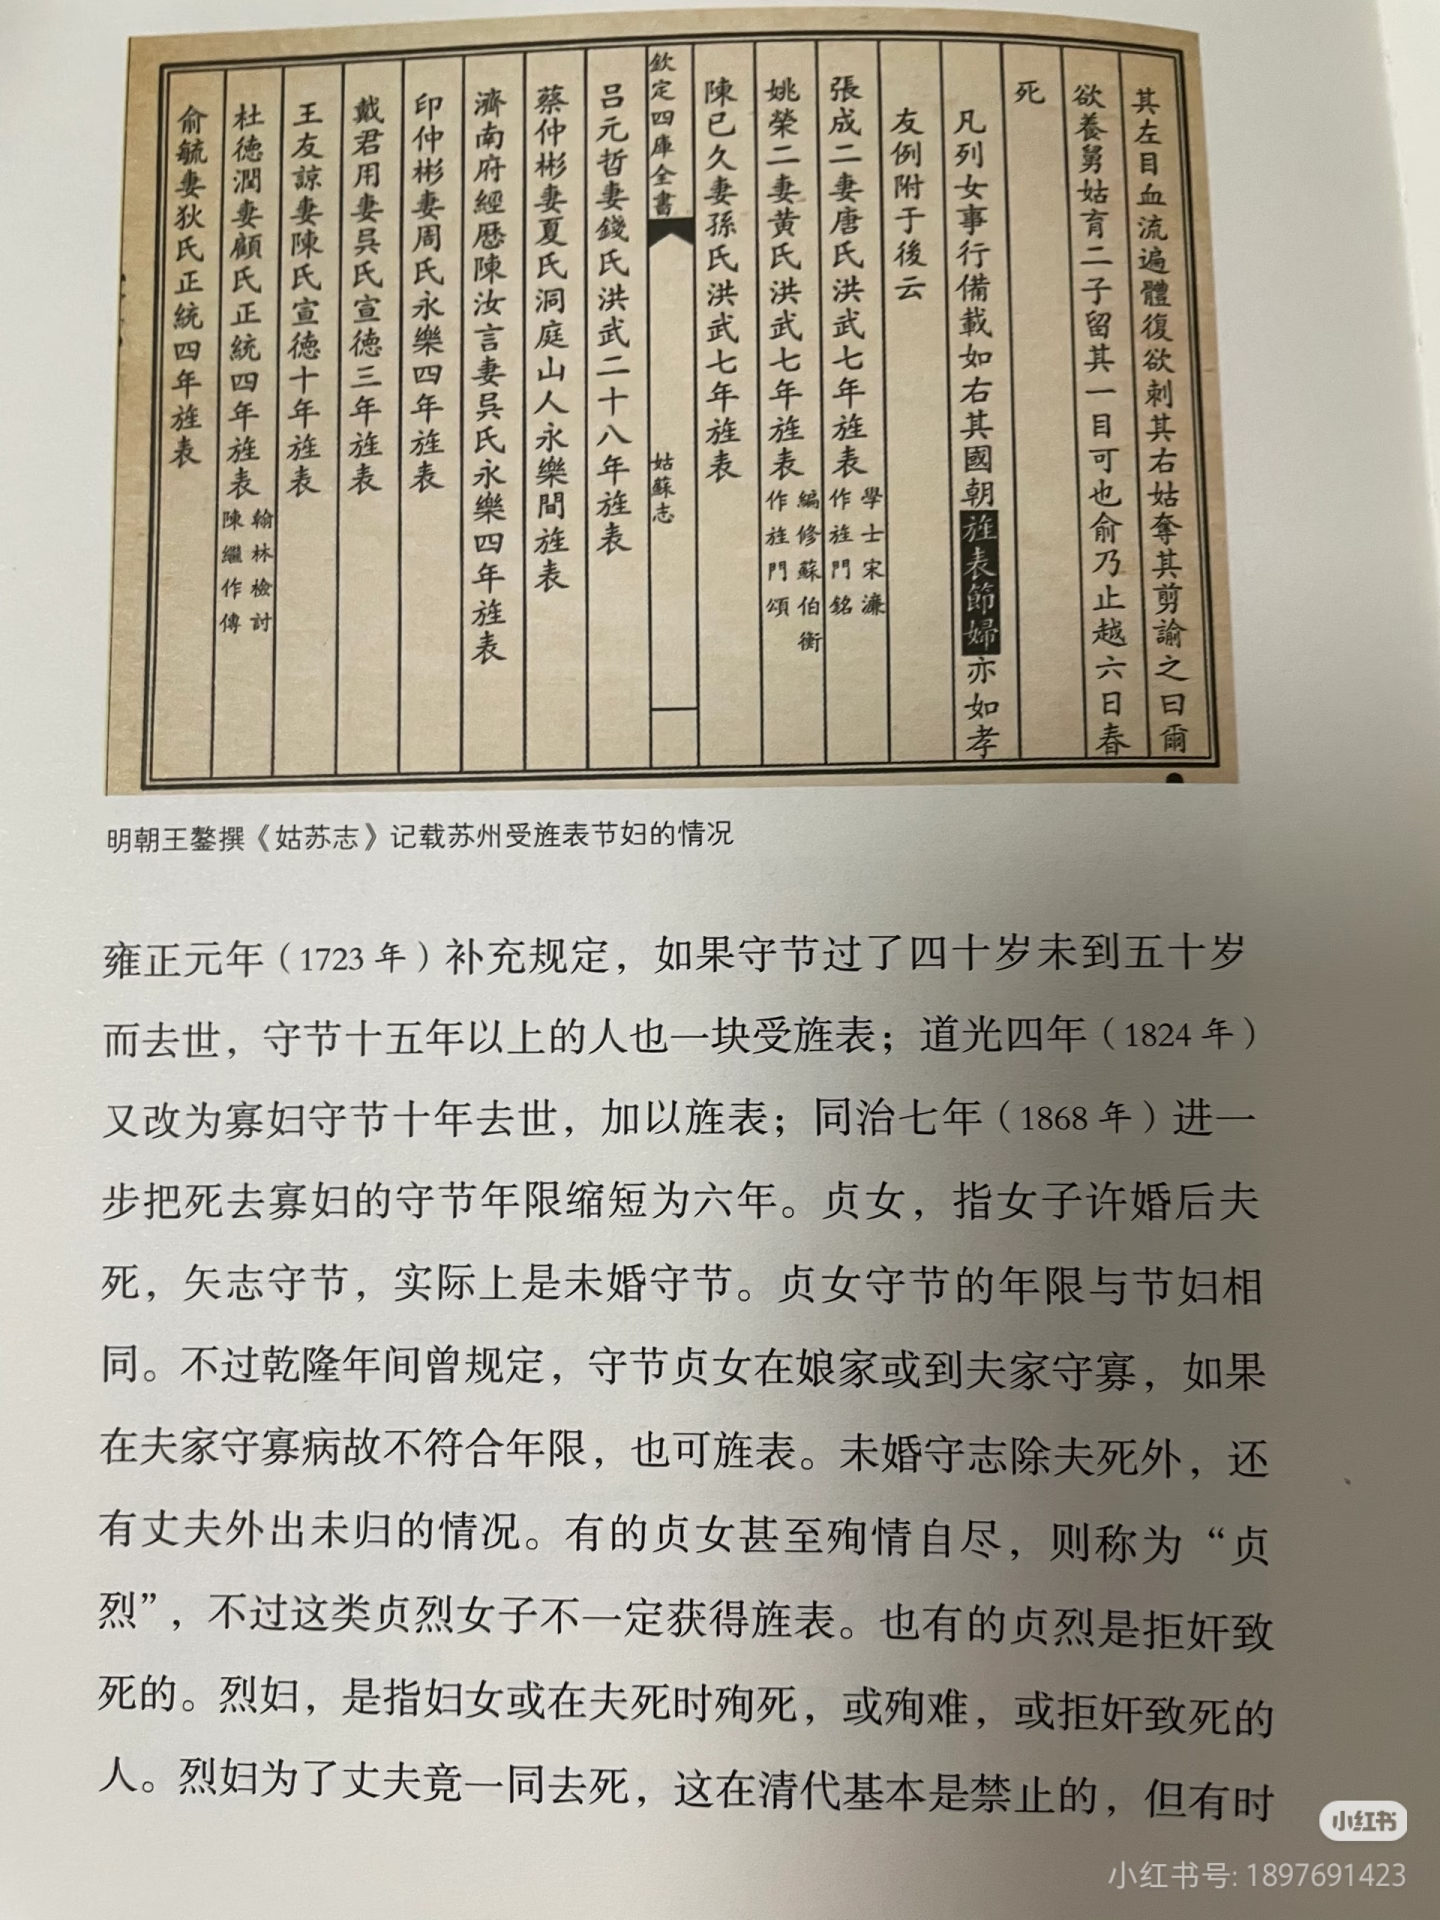 其左目血流遍體復欲刺其右姑奪其剪諭之曰爾
欲養舅姑育二子留其一目可也俞乃止越六日春
死
凡列女事行備載如右其國朝旌表節婦亦如孝
友例附于後云
張成二妻唐氏洪武七年旌表學士宋濂作旌門銘
姚榮二妻黄氏洪武七年旌表編修蘇伯衡作旌門頌
陳已久妻孫氏洪武七年旌表
欽定四庫全書 姑蘇志
吕元哲妻錢氏洪武二十八年旌表
蔡仲彬妻夏氏洞庭山人永樂間旌表
濟南府經歷陳汝言妻吳氏永樂四年旌表
印仲彬妻周氏永樂四年旌表
戴君用妻吳氏宣德三年旌表
王友諒妻陳氏宣德十年旌表
杜德潤妻顧氏正統四年旌表翰林檢討陳繼作傳
俞毓妻狄氏正統四年旌表
明朝王鏊撰《姑苏志》记载苏州受旌表节妇的情况
雍正元年（1723 年）补充规定，如果守节过了四十岁未到五十岁
而去世，守节十五年以上的人也一块受旌表；道光四年（1824 年）
又改为寡妇守节十年去世，加以旌表；同治七年（1868 年）进一
步把死去寡妇的守节年限缩短为六年。贞女，指女子许婚后夫
死，矢志守节，实际上是未婚守节。贞女守节的年限与节妇相
同。不过乾隆年间曾规定，守节贞女在娘家或到夫家守寡，如果
在夫家守寡病故不符合年限，也可旌表。未婚守志除夫死外，还
有丈夫外出未归的情况。有的贞女甚至殉情自尽，则称为“贞
烈”，不过这类贞烈女子不一定获得旌表。也有的贞烈是拒奸致
死的。烈妇，是指妇女或在夫死时殉死，或殉难，或拒奸致死的
人。烈妇为了丈夫竟一同去死，这在清代基本是禁止的，但有时
小红书
小红书号: 1897691423